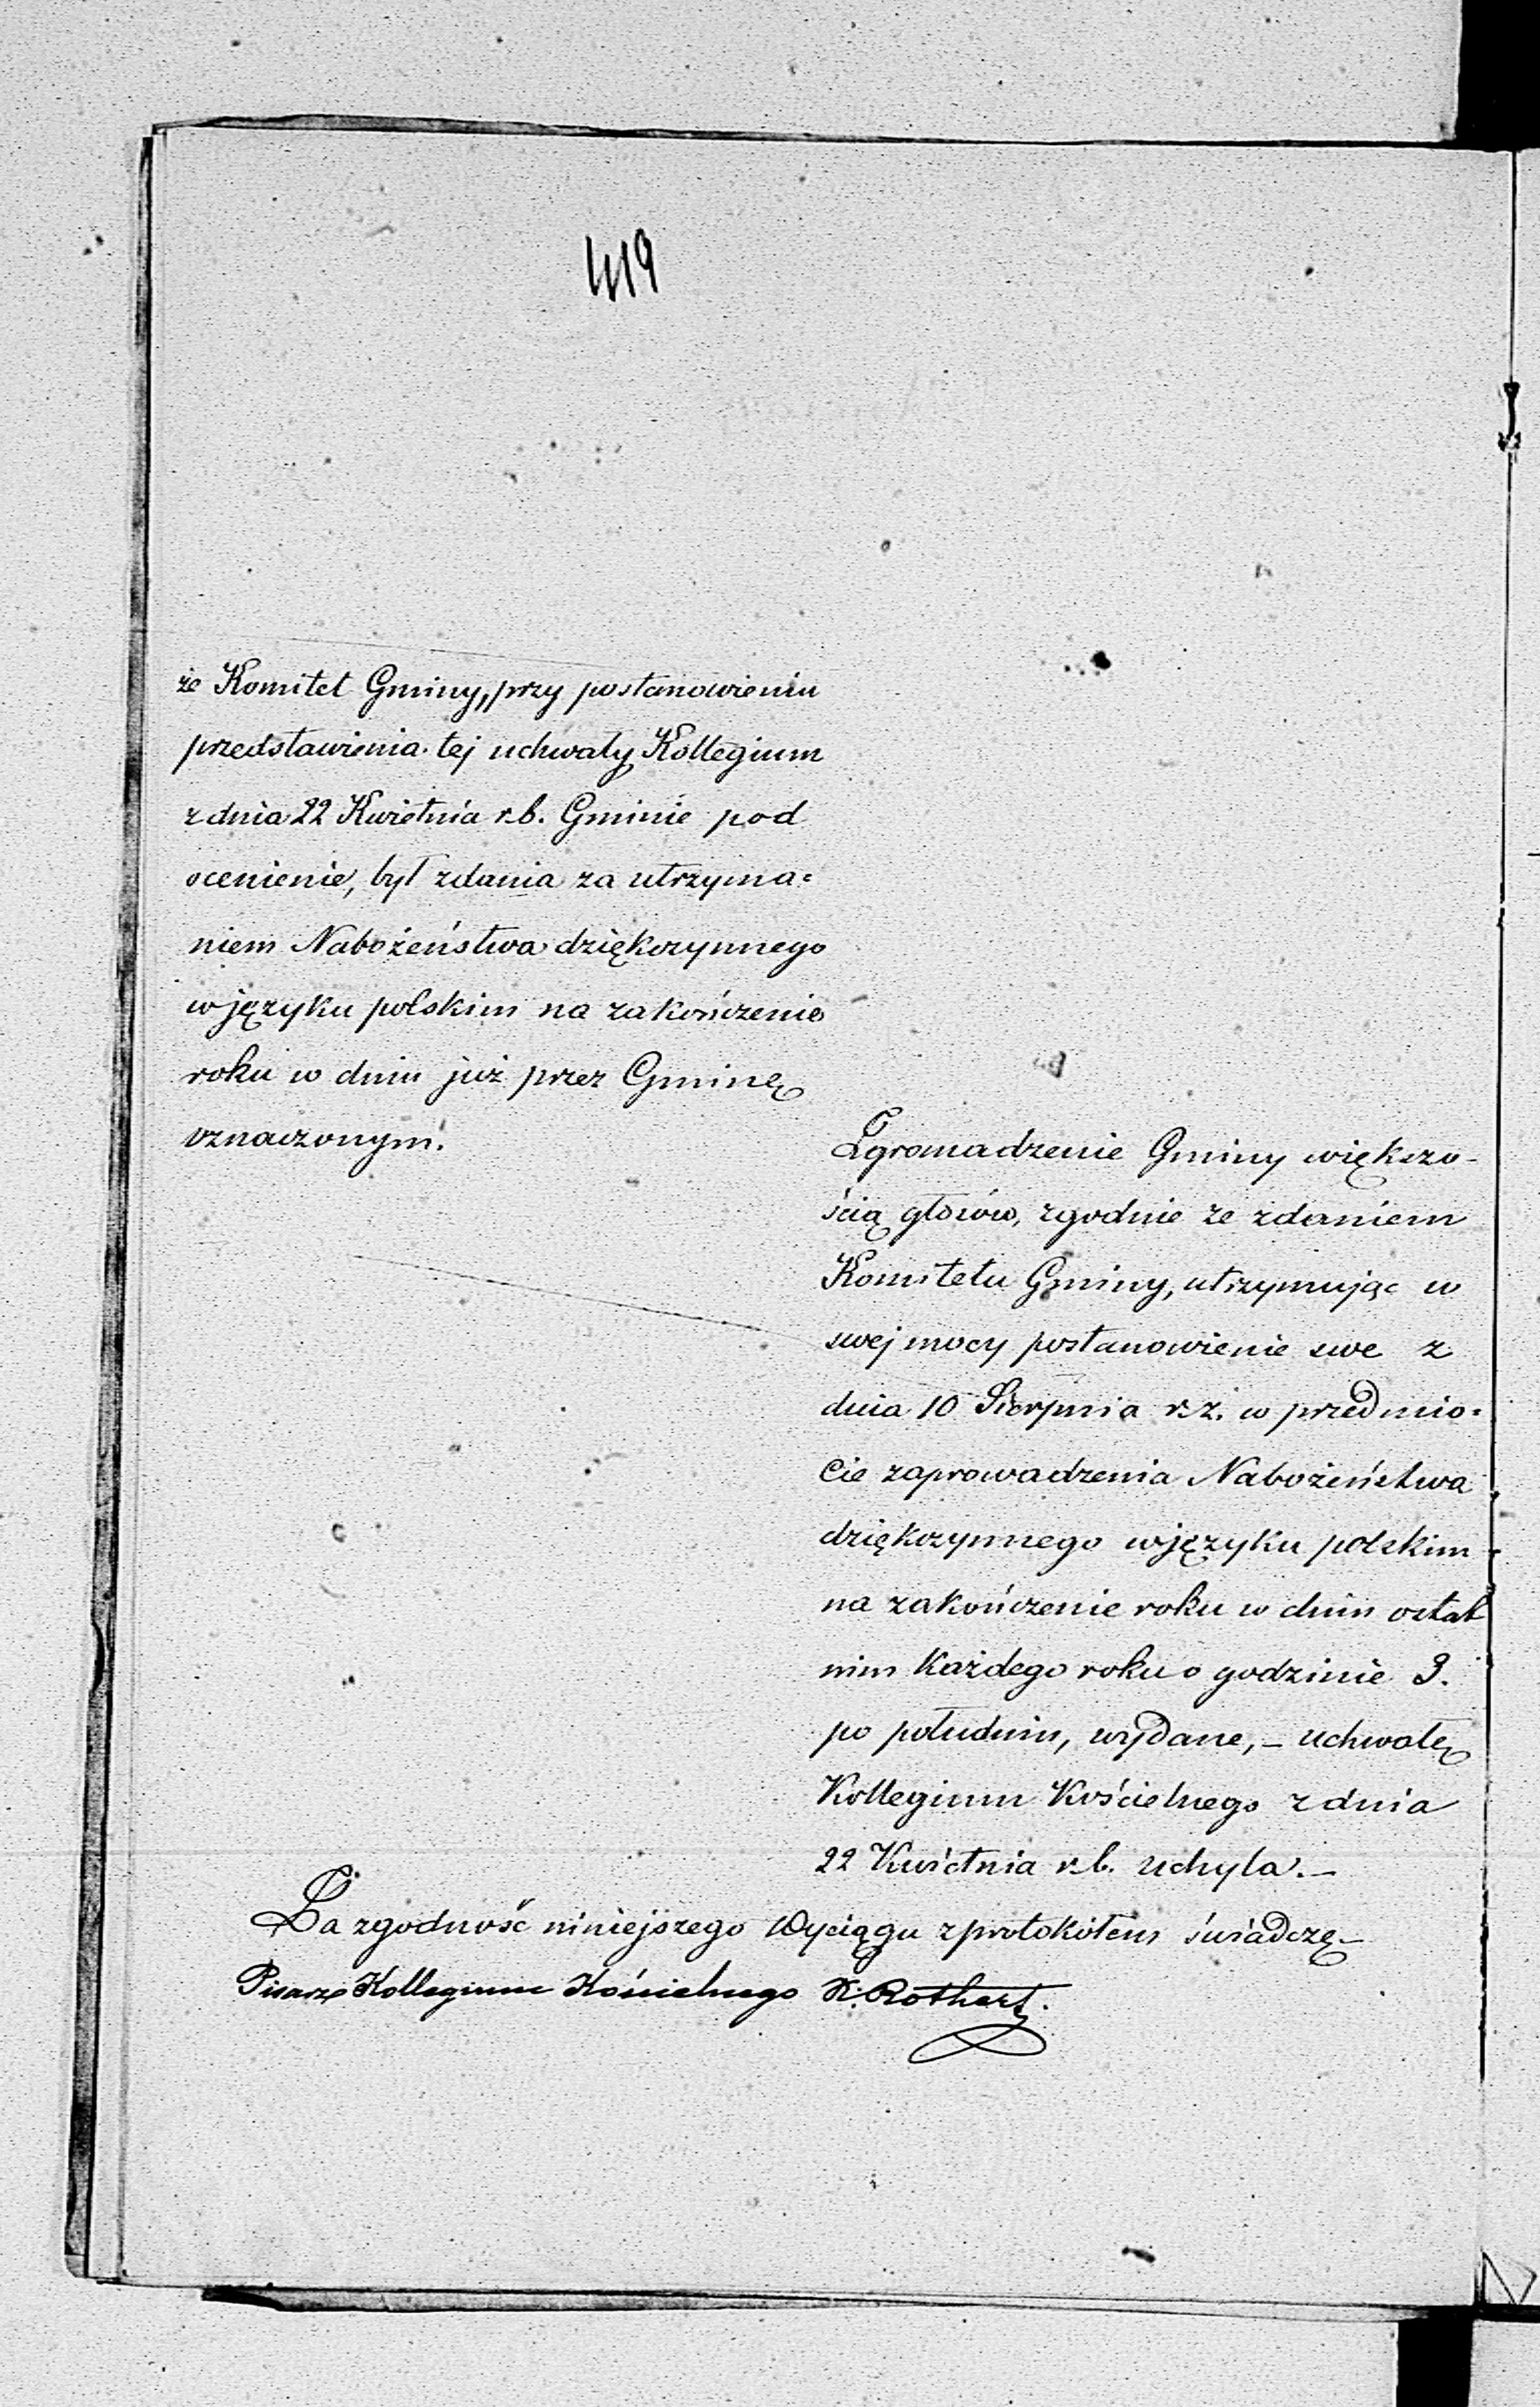 419
że Komitet Gminy, przy postanowieniu
przedstawienia tej uchwały Kollegium
z dnia 22 Kwietnia r.b. Gminie pod
ocenienie, był zdania za utrzyma=
niem Nabożeństwa dziękczynnego
w języku polskim na zakończenie
roku w dniu już przez Gminę
oznaczonym.
Zgromadzenie Gminy większo-
ścią głosów, zgodnie ze zdaniem
Komitetu Gminy, utrzymując w
swej mocy postanowienie swe z
dnia 10 Sierpnia r.z. w przedmio=
cie zaprowadzenia Nabożeństwa
dziękczynnego w języku polskim
na zakończenie roku w dniu ostat
nim każdego roku o godzinie 3.
po południu, wydane, – uchwałę
Kollegium Kościelnego z dnia
22 Kwietnia r.b. uchyla. –
Za zgodność niniejszego Wyciągu z protokółem świadczę –
Pisarz Kollegium Kościelnego K. Rothert.